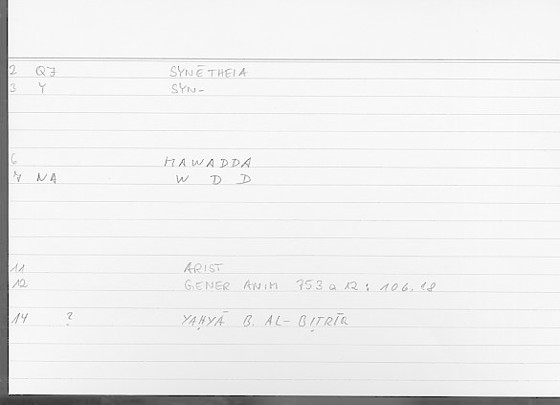 2 QJ SYNĒTHEIA
3 Y SYN-
6 MAWADDA
7 NA W D D
11 ARIST
12 GENER ANIM 753 a 12 : 106.18
14 ? YAḤYĀ B. AL-BIṬRĪQ